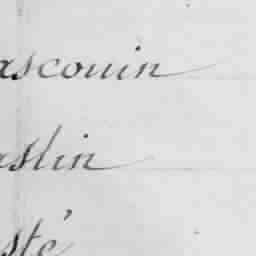 ascouin
aslin
sté